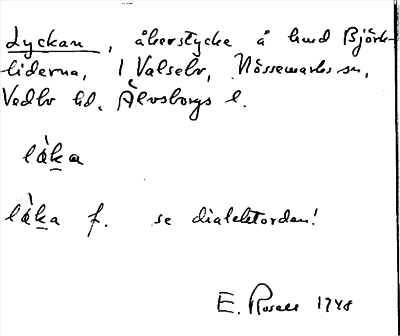 Lyckan, åkerstycke å hmd Björk-
liderna, 1 Valselv, Nössemarks sn,
Vedbo hd. Älvsborgs l.
lὰka
lὰka f. se dialektorden!
E. Rosell 1948